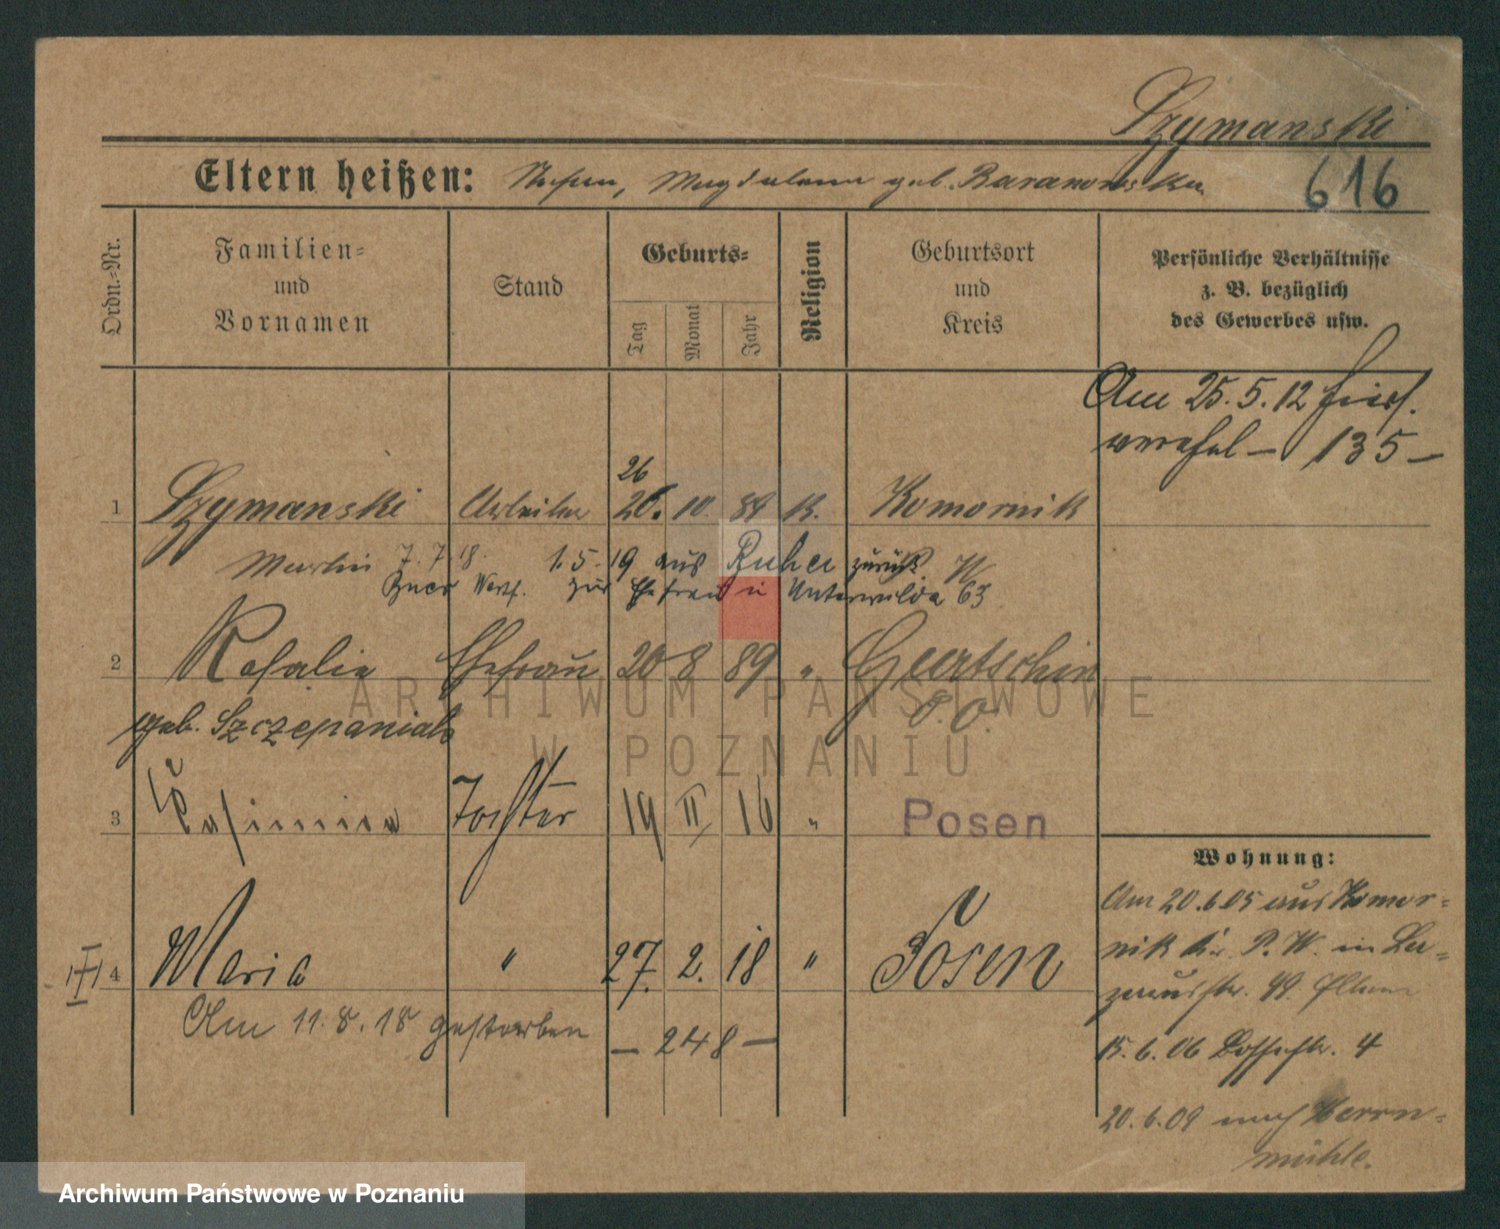 Szymanski
Eltern heißen: Stefan, Magdalena geb. Baranowska
616
Ordn.-Nr.
Familien-
und
Vornamen
Stand
Geburts-
Tag
Monat
Jahr
Religion
Geburtsort
und
Kreis
Persönliche Verhältnisse
z. B. bezüglich
des Gewerbes usw.
Am 25.5.12 hies.
verehel – 135 –
26
1 Szymanski Arbeiter 26. 10. 84 K. Komornik
Martin 7.7.18. 1.5.19 aus Buer zurück
Buer Westf. zur Ehefrau in Unterwilda 63
2 Rosalie Ehefrau 20 8 89 " Gurtschin
geb. Szczepaniak P. O.
3 Kasimira Tochter 19 II 16 " Posen
4 Maria " 27. 2. 18 " Posen
Am 11.8.18 gestorben
– 248 –
Wohnung:
Am 20.6.05 aus Komor-
nik Kr. P. W. in La-
zarusstr. 49. Eltern
15.6.06 4
20.6.09 nach Herrn-
mühle.
ARCHIWUM PAŃSTWOWE
W POZNANIU
Archiwum Państwowe w Poznaniu